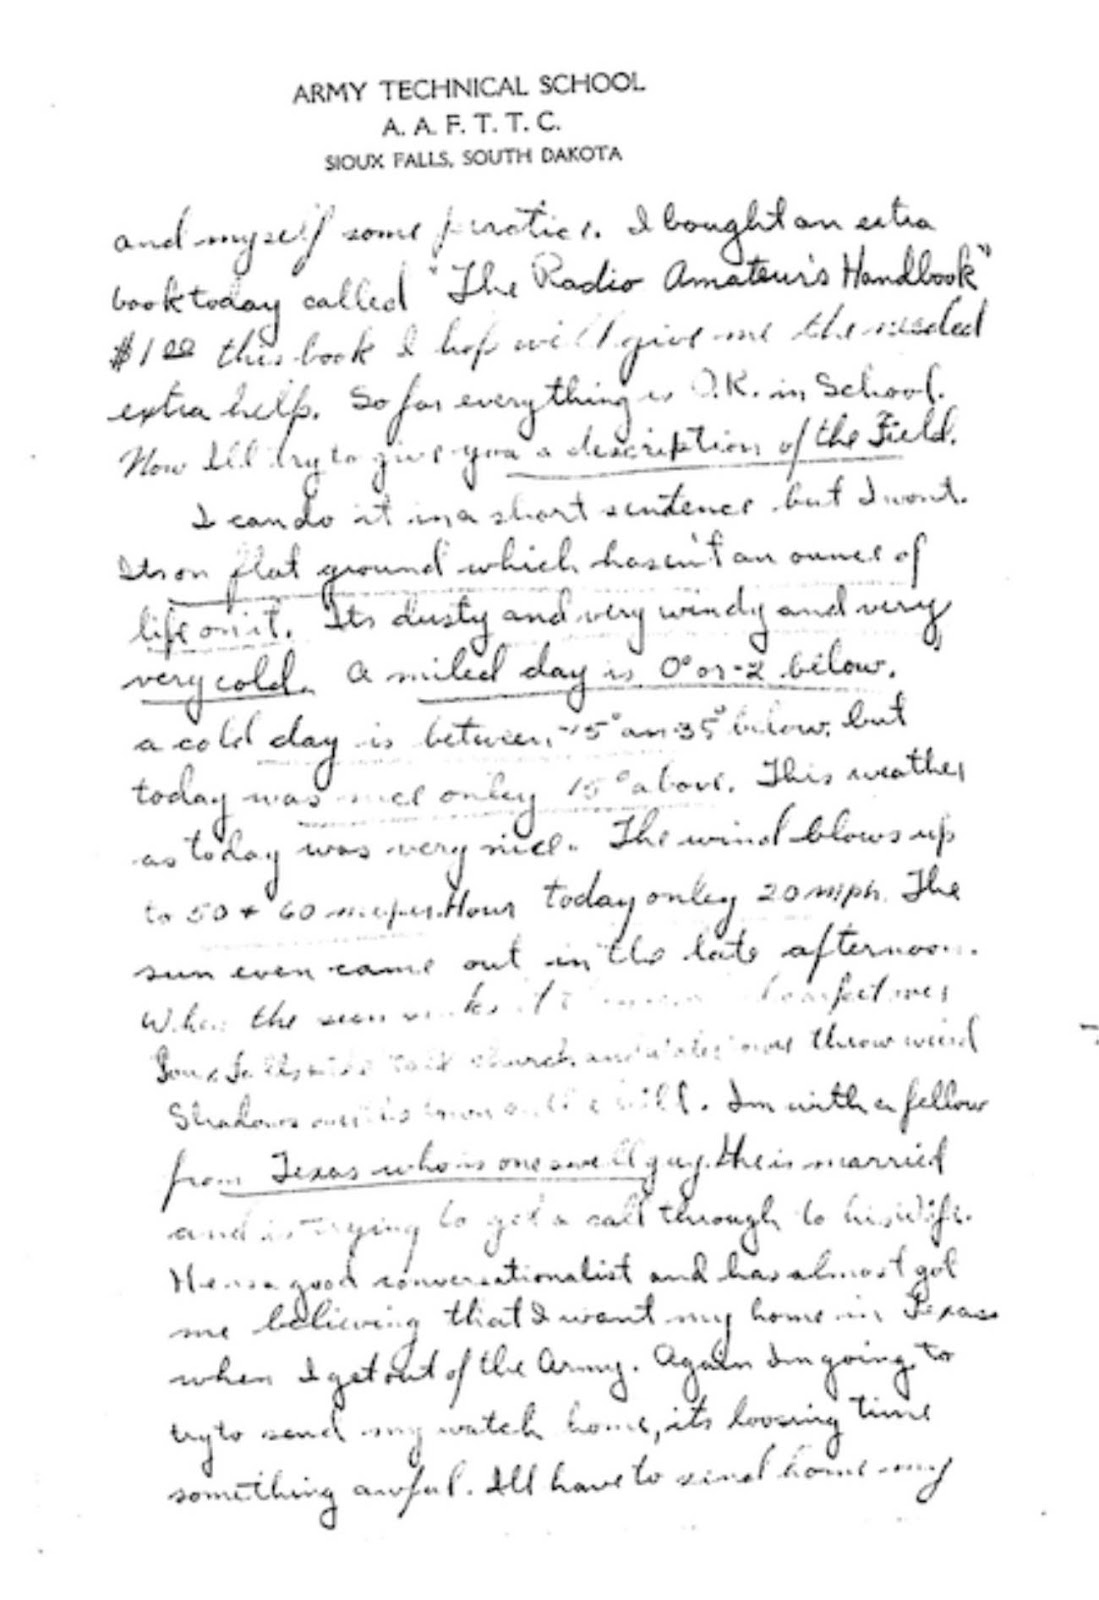 ARMY TECHNICAL SCHOOL
A. A. F. T. T. C.
SIOUX FALLS, SOUTH DAKOTA
and myself some practice. I bought an extra
book today called "The Radio Amateur's Handbook"
$1.00 this book I hope will give me the needed
extra help. So far everything is O.K. in School.
Now Ill try to give you a description of the Field.
I can do it in a short sentence but I wont.
Its on flat ground which hasn't an ounce of
life on it. Its dusty and very windy and very
very cold. A day is 0° or -2 below.
a cold day is between -15° an 35° below. but
today was nice onley 15° above. This weather
as today was very nice. The wind blows up
to 50 + 60 Hour today onley 20 mph. The
sun even came out in the late afternoon.
When the sun
church and throw weird
Shadows hill. Im with a fellow
from Texas who is one swell guy. He is married
and is trying to get a call through to his wife.
He is a good conversationalist and has almost got
me believing that I want my home in Texas
when I get out of the Army. Again Im going to
try to send my watch home, its loosing time
something awful. Ill have to send home my